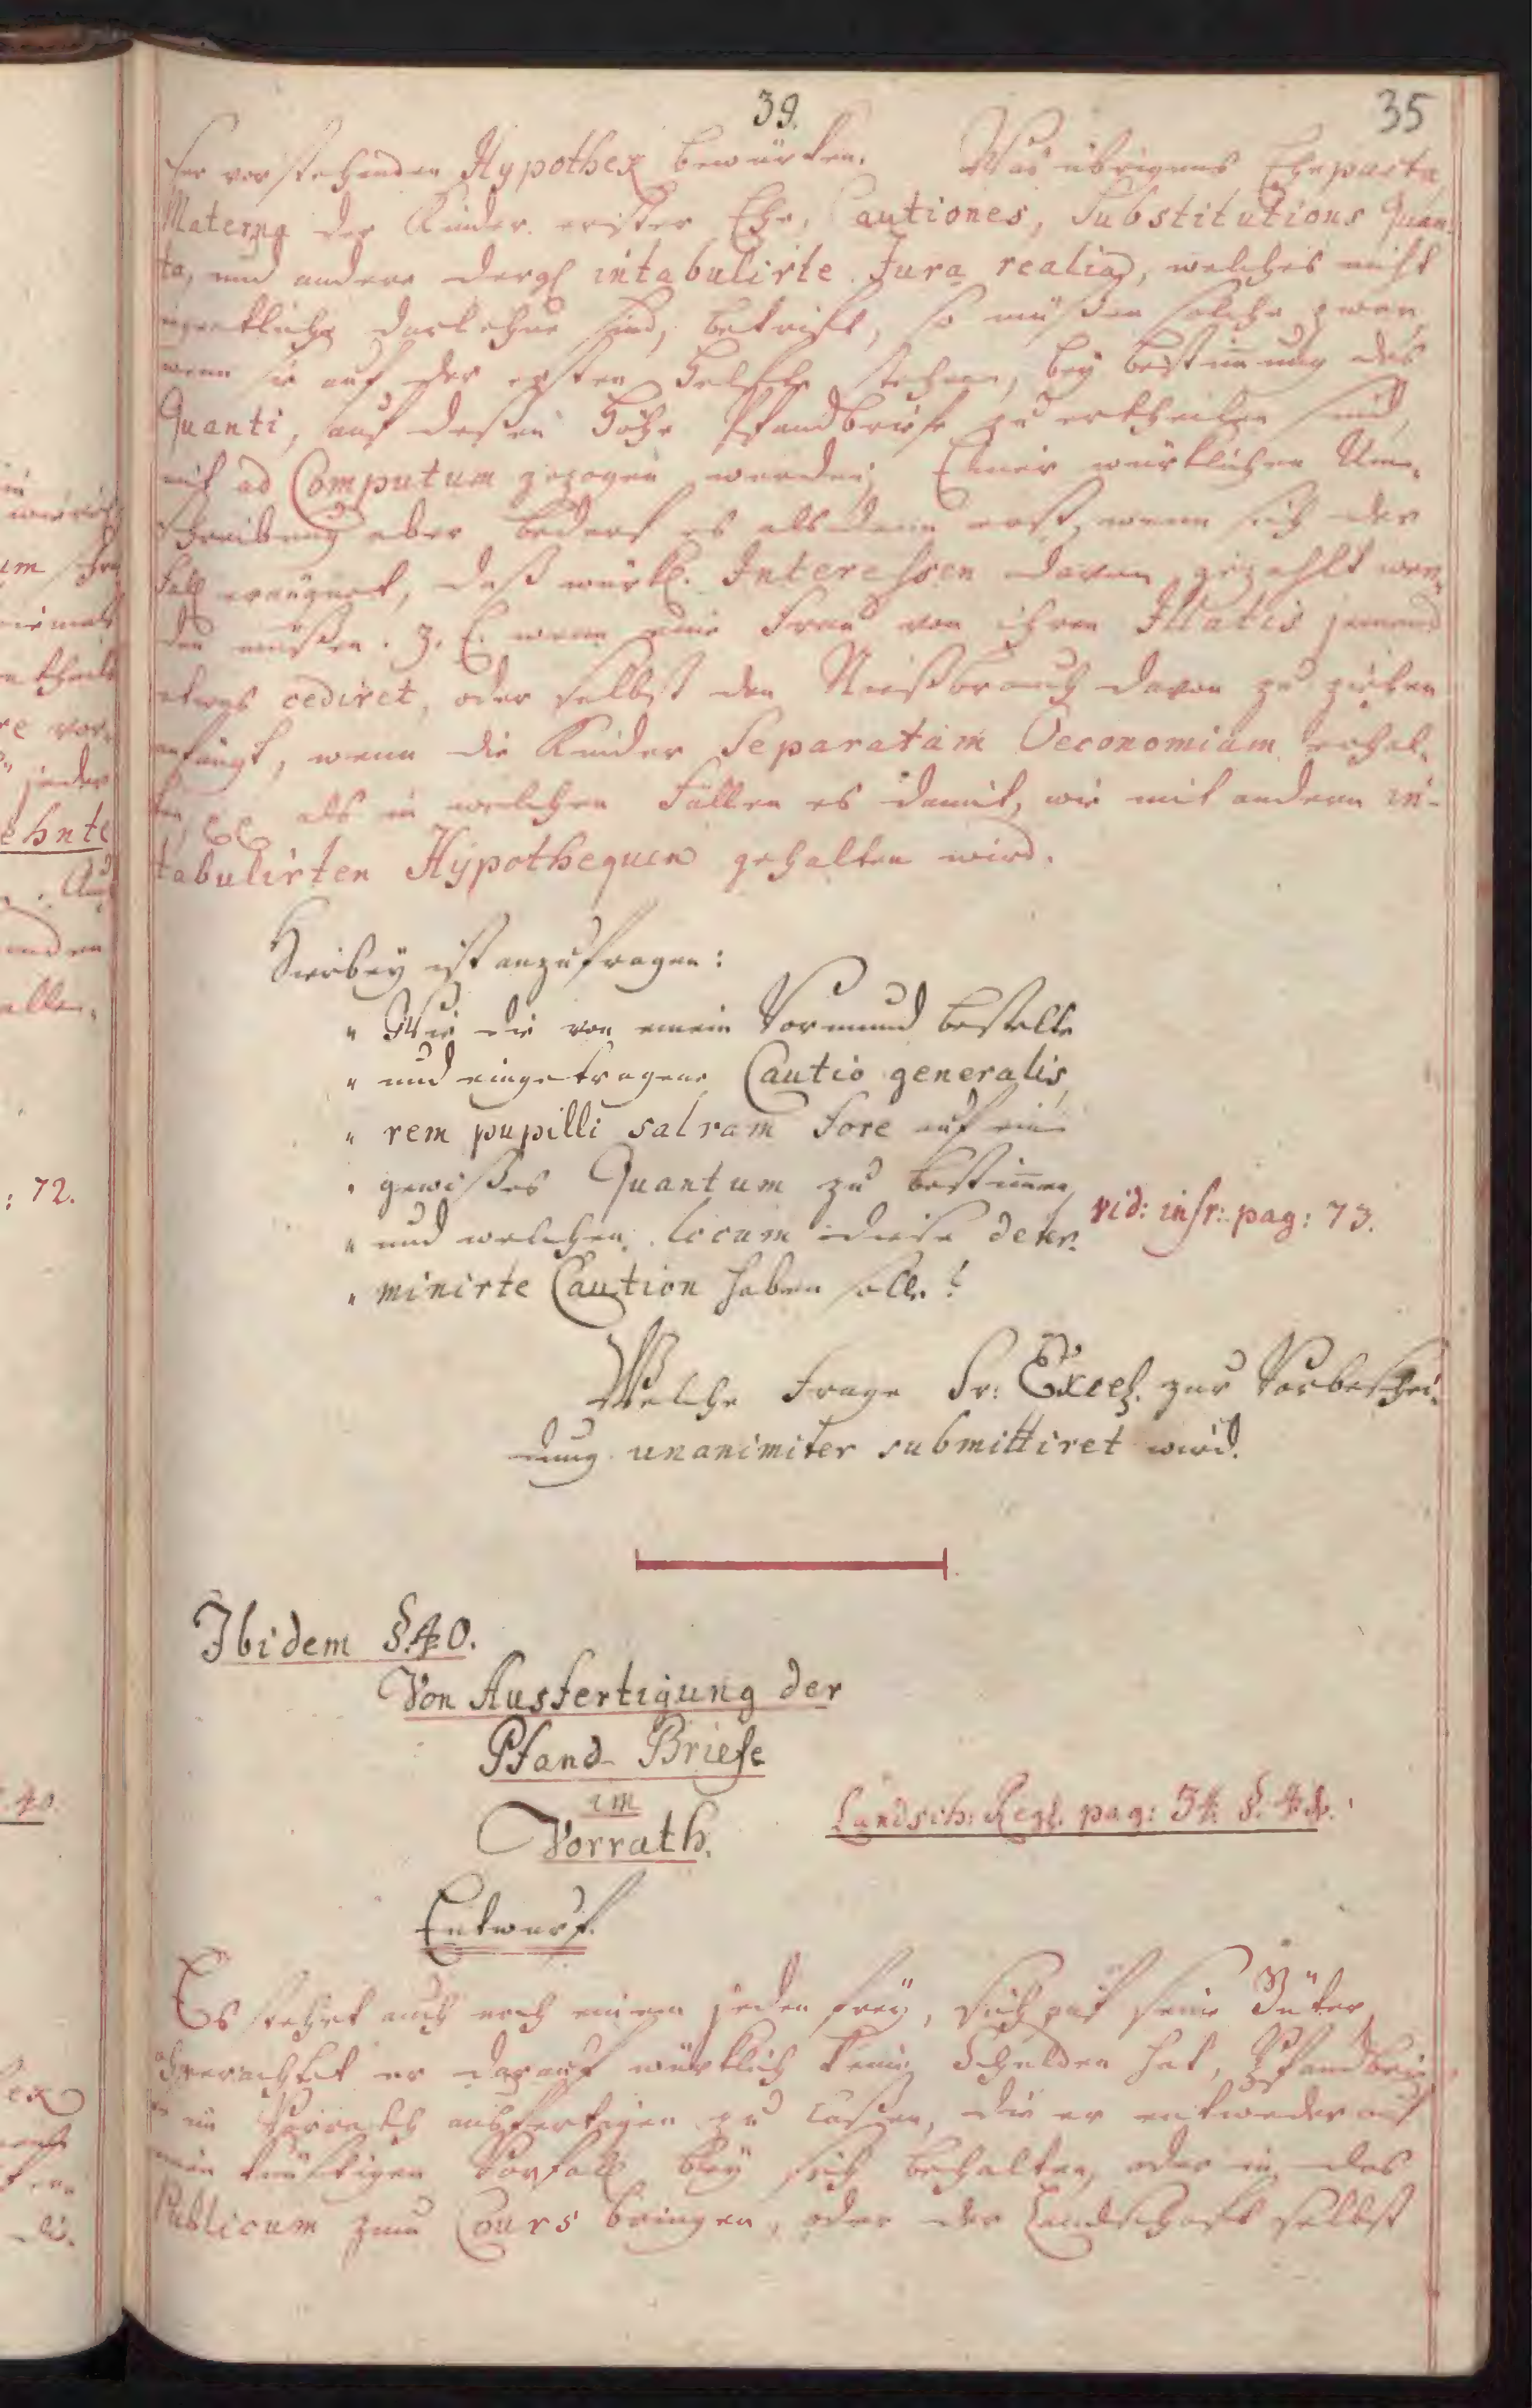 39.
35
her vorstehenden Hypothek bewürken. Was übrigens Ehepacta,
Materna der Kinder erster Ehe, Cautiones, Substitutions Quan-
ta, und andere dergl intabulirte Jura realia, welches nicht
eigentliche Darlehne sind, betrift, so müßen solche zwar,
wenn sie auf der ersten Helfte stehen, bey Bestimmung des
Quanti, auf deßen Höhe Pfandbriefe zu ertheilen sind,
mit ad Computum gezogen werden; Einer würklichen Um-
schreibung aber bedarf es alsdann erst, wenn sich der
Fall eräugnet, daß würkl. Interessen davon gezahlt wer-
den müßen. z. E. wenn eine Frau von ihren Illatis jemand
etwas cediret, oder selbst den Nießbrauch davon zu ziehen
anfängt, wenn die Kinder Separatam Oeconomiam erhal-
ten, als in welchen Fällen es damit, wie mit andern in-
tabulirten Hypothequen gehalten wird.
Hierbey ist anzufragen:
" Wie die von einem Vormund bestellte
" und eingetragene Cautio generalis,
" rem pupilli salvam fore auf ein
" gewißes Quantum zu bestimmen,
" und welchen locum diese deter-
" minirte Caution haben solle?
vid: infr: pag: 73.
Welche Frage Sr: Excel. zur Vorbeschei-
dung unanimiter submittiret wird.
Ibidem §. 40.
Von Ausfertigung der
Pfand-Briefe
im
Vorrath.
Landsch: Regl. pag: 34. §. 42.
Entwurf.
Es stehet auch noch einem jeden frey, sich auf seine Güter,
ohnerachtet er darauf würklich keine Schulden hat, Pfandbrie-
fe im Vorrath ausfertigen zu laßen, die er entweder auf
einen künftigen Vorfall bey sich behalten, oder in das
Publicum zum Cours bringen, oder der Landschaft selbst